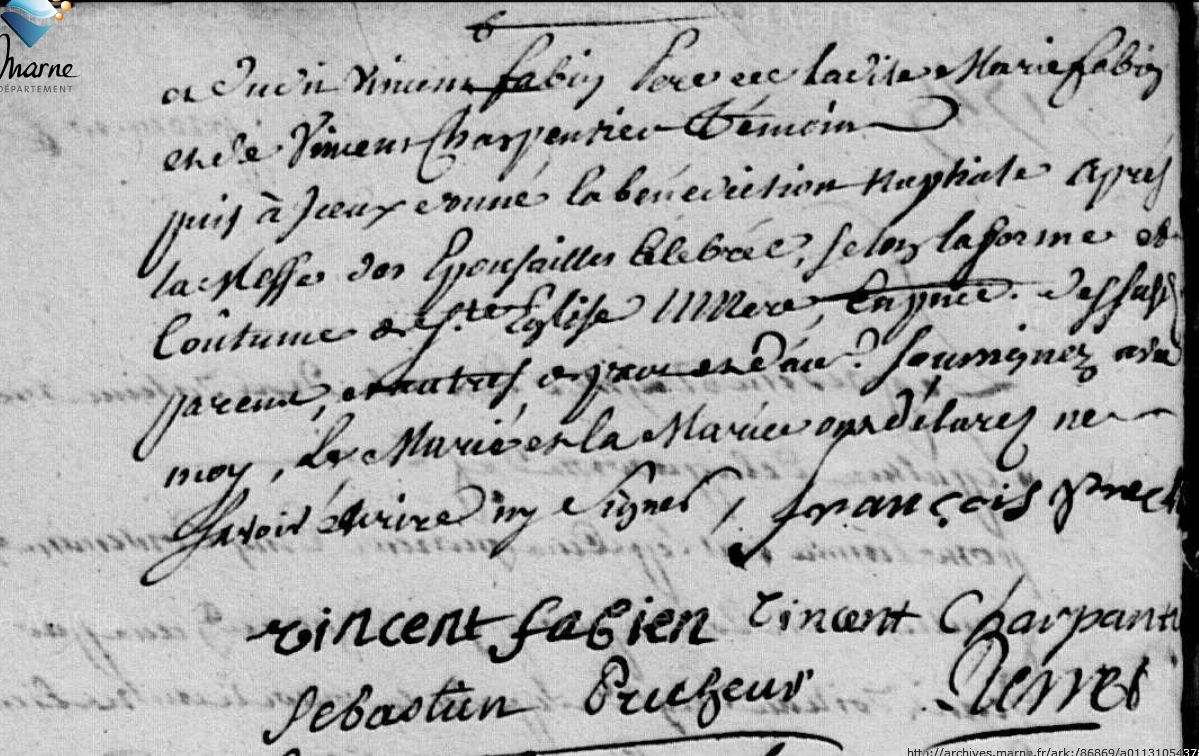 Marne
DÉPARTEMENT
Archives de la Marne
Vincent fabin Pere de ladite Marie fabin
et de Vincent Charpentier Témoin
puis à Iceux donné la bénédiction Nuptiale Après
la Messe des Epousailles Célébrée, selon la forme et
Coûtume de Ste Église Mere, En pnce. des susd
parents, et autres soussignez avec
moy, Le Marié et la Mariée ont déclarez ne
savoir écrire ny signer, françois
vincent fabien Vincent Charpanti
Sebastien Pricheur
http://archives.marne.fr/ark:/86869/a0113105437